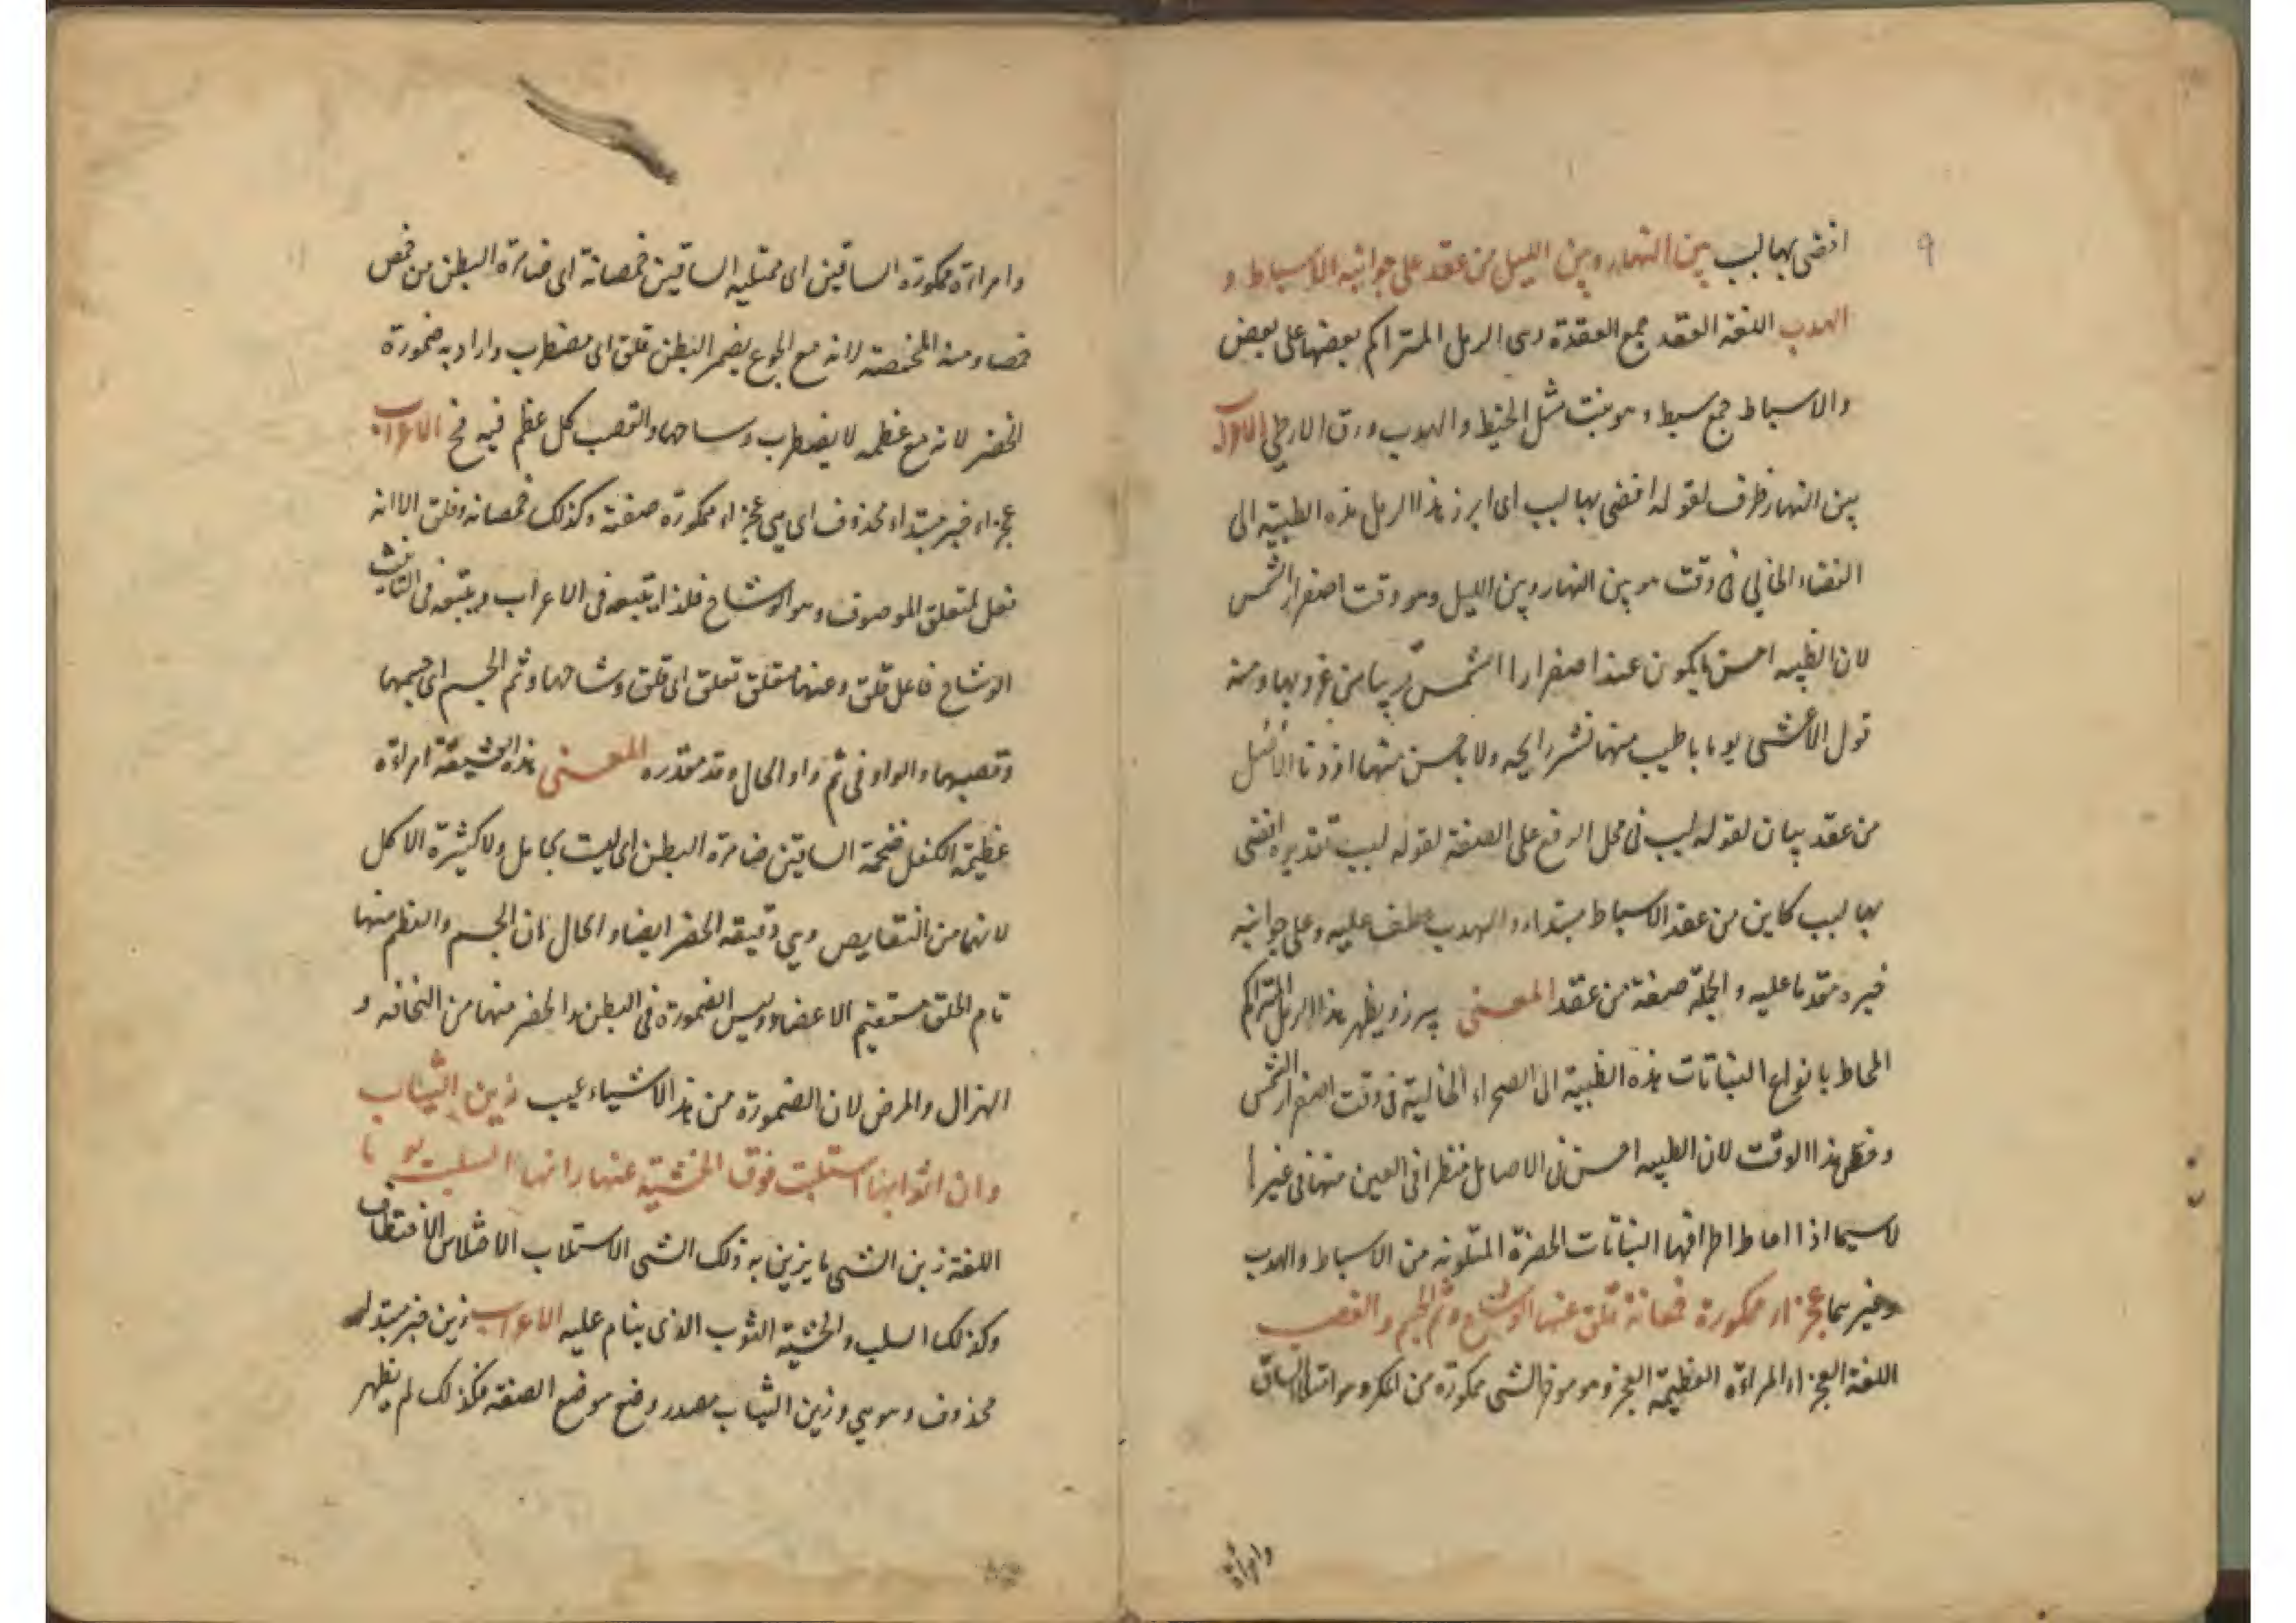 ٩
افضى بها لبب بين النهار وبين الليل من عقد على جوانبه الاسباط و
الهدب اللغة العقد جمع العقدة وهى الرمل المتراكم بعضها على بعض
والاسباط جمع سبط وهو نبت مثل الخيط والهدب ورق الارطى الاعراب
بين النهار ظرف لقوله افضى بها لبب اى ابرز هذا الرمل هذه الظبية الى
الفضاء الخالي في وقت هو بين النهار وبين الليل وهو وقت اصفرار الشمس
لان الظبيه احسن ما يكون عند اصفرارا الشمس قريبا من غروبها ومنه
قول الأعشى يوما باطيب منها نشر رايحه ولا باحسن منها اذ دنا الأُصُل
من عقد بيان لقوله لبب فى محل الرفع على الصفة لقوله لبب تقديره افضى
بها لبب كاين من عقد الاسباط مبتداء والهدب عطف عليه وعلى جوانبه
خبره مقدما عليه والجملة صفة من عقد المعنى يبرز ويظهر هذا الرمل المتراكم
المحاط بانواع النباتات هذه الظبية الى الصحراء الخالية فى وقت اصفرار الشمس
وخص هذا الوقت لان الظبيه احسن فى الاصايل منظرا فى العين منها فى غيرها
لاسيما اذا احاط اطرافها النباتات الخضرة المتلونه من الاسباط والهدب
وغيرهما عجزاء ممكورة خمصانة قلق عنها الوشاح وتم الجسم والقصب
اللغة العجزاء المراءة العظيمة العجز وهو موخر الشى ممكورة من المكر وهو امتلاء الساق
وامراءة
وامراءة ممكورة الساقين اى ممتليه الساقين خمصانة اى ضامرة البطن من خمص
خمصا ومنه المخمصة لانه مع الجوع يضمر البطن قلق اى مضطرب واراد به ضمورة
الخصر لانه مع عظمه لا يضطرب وساحها والقصب كل عظم فيه مخ الاعراب
عجزاء خبر مبتداء محذوف اى هي عجزاء ممكورة صفة وكذلك خمصانه وقلق الا انه
فعل لمتعلق الموصوف وهو الوشاح فلذا يتبعه فى الاعراب ولا يتبعه فى التانيث
الوشاح فاعل قلق وعنها متعلق تعلق اى قلق وشاحها وتم الجسم اى جسمها
وقصبها والواو فى تم واو الحال وقد مقدره المعنى هذه العشيقة امراءة
عظيمة الكفل ضخمة الساقين ضامرة البطن اى ليست بحامل ولا كثيرة الاكل
لانهما من النقايص وهي دقيقه الخصر ايضا والحال ان الجسم والعظم منها
تام الخلق مستقيم الاعضاء وليس الضمورة فى البطن والخصر منها من النحافه و
الهزال والمرض لان الضمورة من هذ الاشياء عيب زين الثياب
وان اثوابها استلبت فوق الحشية عنها زانها السلب يو ما
اللغة زين الشى ما يزين به ذلك الشى الاستلاب الاختلاس الاختطاف
وكذلك السلب والحشية الثوب الذى ينام عليه الاعراب زين خبر مبتداء
محذوف وهو هي وزين الثياب مصدر وضع موضع الصفة فكذلك لم يظهر